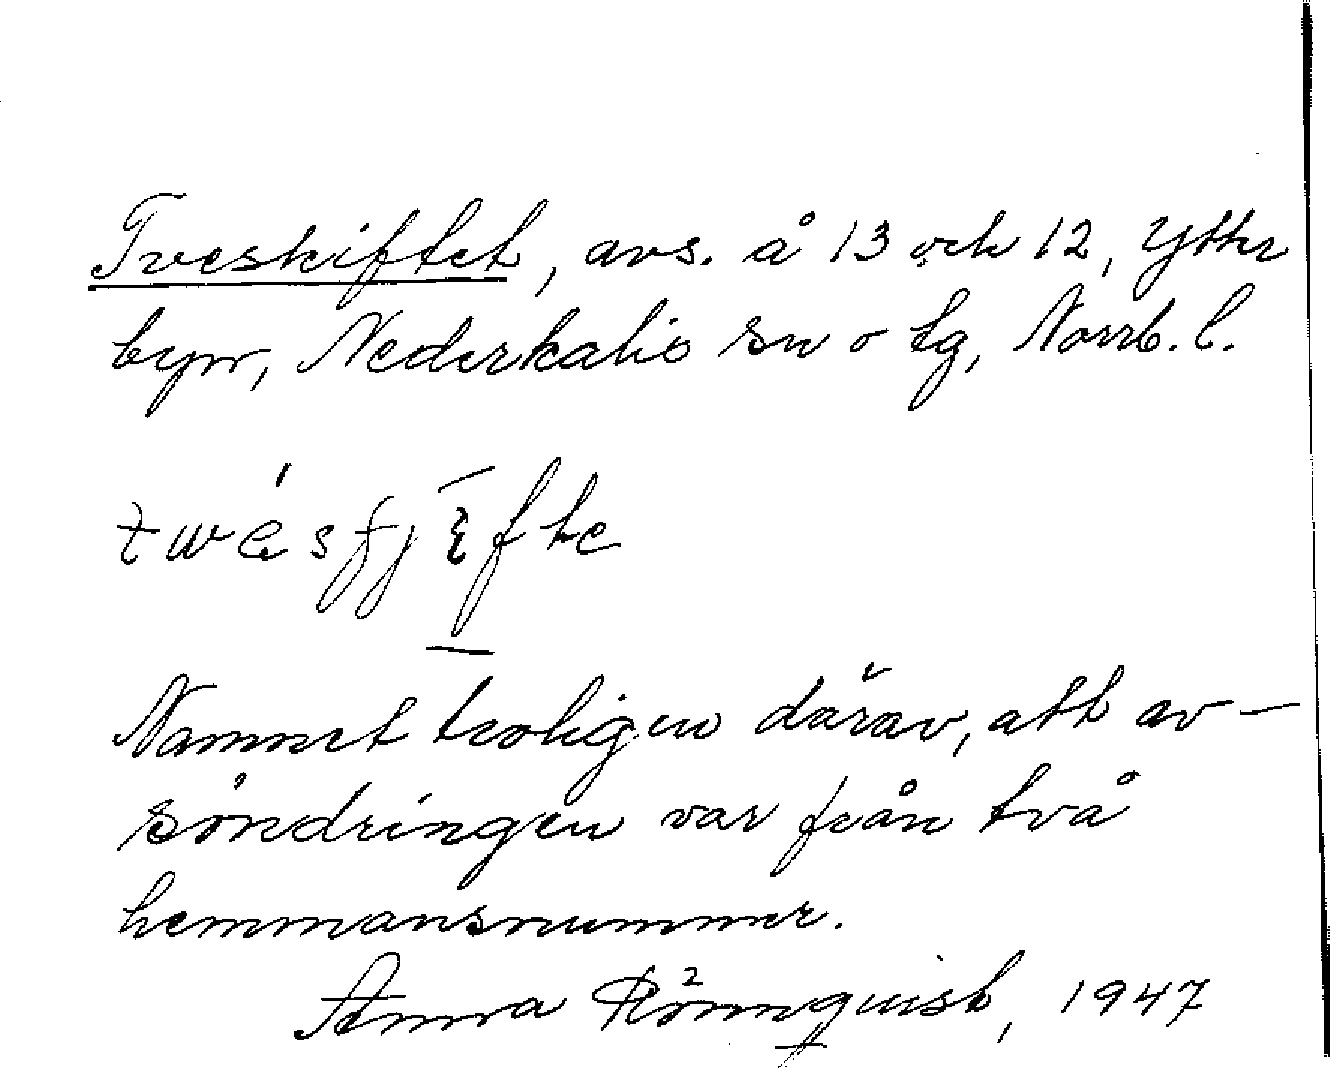 Tveskiftet, avs. å 13 och 12, Ytter
byn, Nederkalix sn o tg, Norrb. l.
Namnet troligen därav, att av-
söndringen var från två
hemmansnummer.
Anna Rönnquist, 1947